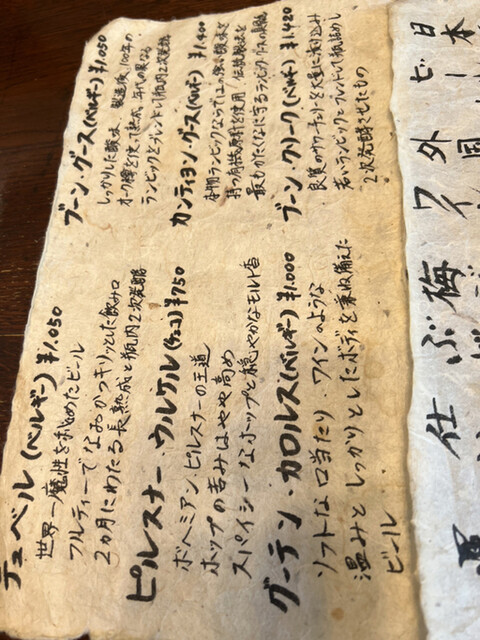 デュベル(ベルギー) ¥1,050
世界一魔性を秘めたビール
フルーティーでなおかつキリッとした飲み口
2ヵ月にわたる長熟成と瓶内2次発酵
ピルスナー・ウルケル(チェコ) ¥750
ボヘミアン、ピルスナーの王道
ホップの苦みはやや高め
スパイシーなホップと穏やかなモルト香
グーデン・カロルス(ベルギー) ¥1,000
ソフトな口当たり・ワインのような
温みと しっかりとしたボディを兼ね備えた
ビール
ブーン・グース(ベルギー) ¥1,050
しっかりした酸味、製造後、100年の
オーク樽を使って熟成、年代の異なる
ランビックをブレンドして瓶内2次発酵
カンティヨン・グース(ベルギー) ¥1,400
本物ランビックならではの強い酸味と
伝統製法を
最もかたくなに守るランビック
ブーン・クリーク(ベルギー) ¥1,420
良質のチェリーを大量に漬け込み
若いランビックとブレンドして瓶詰めし
2次発酵させたもの
日本
ビー
外国
ワイ
梅
ぶ
仕